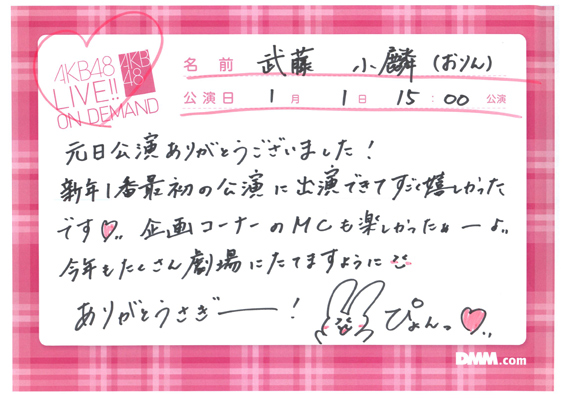 AKB48
LIVE!!
ON DEMAND
AKB
48
名前 武藤 小麟(おりん)
公演日 1月 1日 15:00 公演
元日公演ありがとうございました!
新年1番最初の公演に出演できてすごく嬉しかった
です♡.. 企画コーナーのMCも楽しかったぁーよ..
今年もたくさん劇場にたてますように
ありがとうさぎー! ぴょんっ♡..
DMM.com